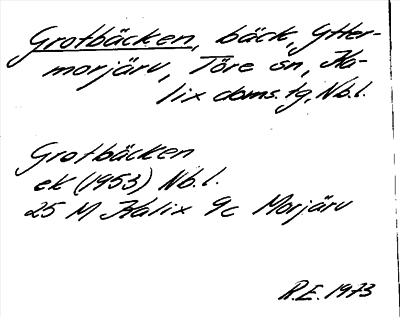 Grotbäcken, bäck, Ytter-
morjärv, Töre sn, Ka-
lix doms.tg, Nb.l.
Grotbäcken
ek (1953) Nb.l.
25 M Kalix 9c Morjärv
R.E. 1973